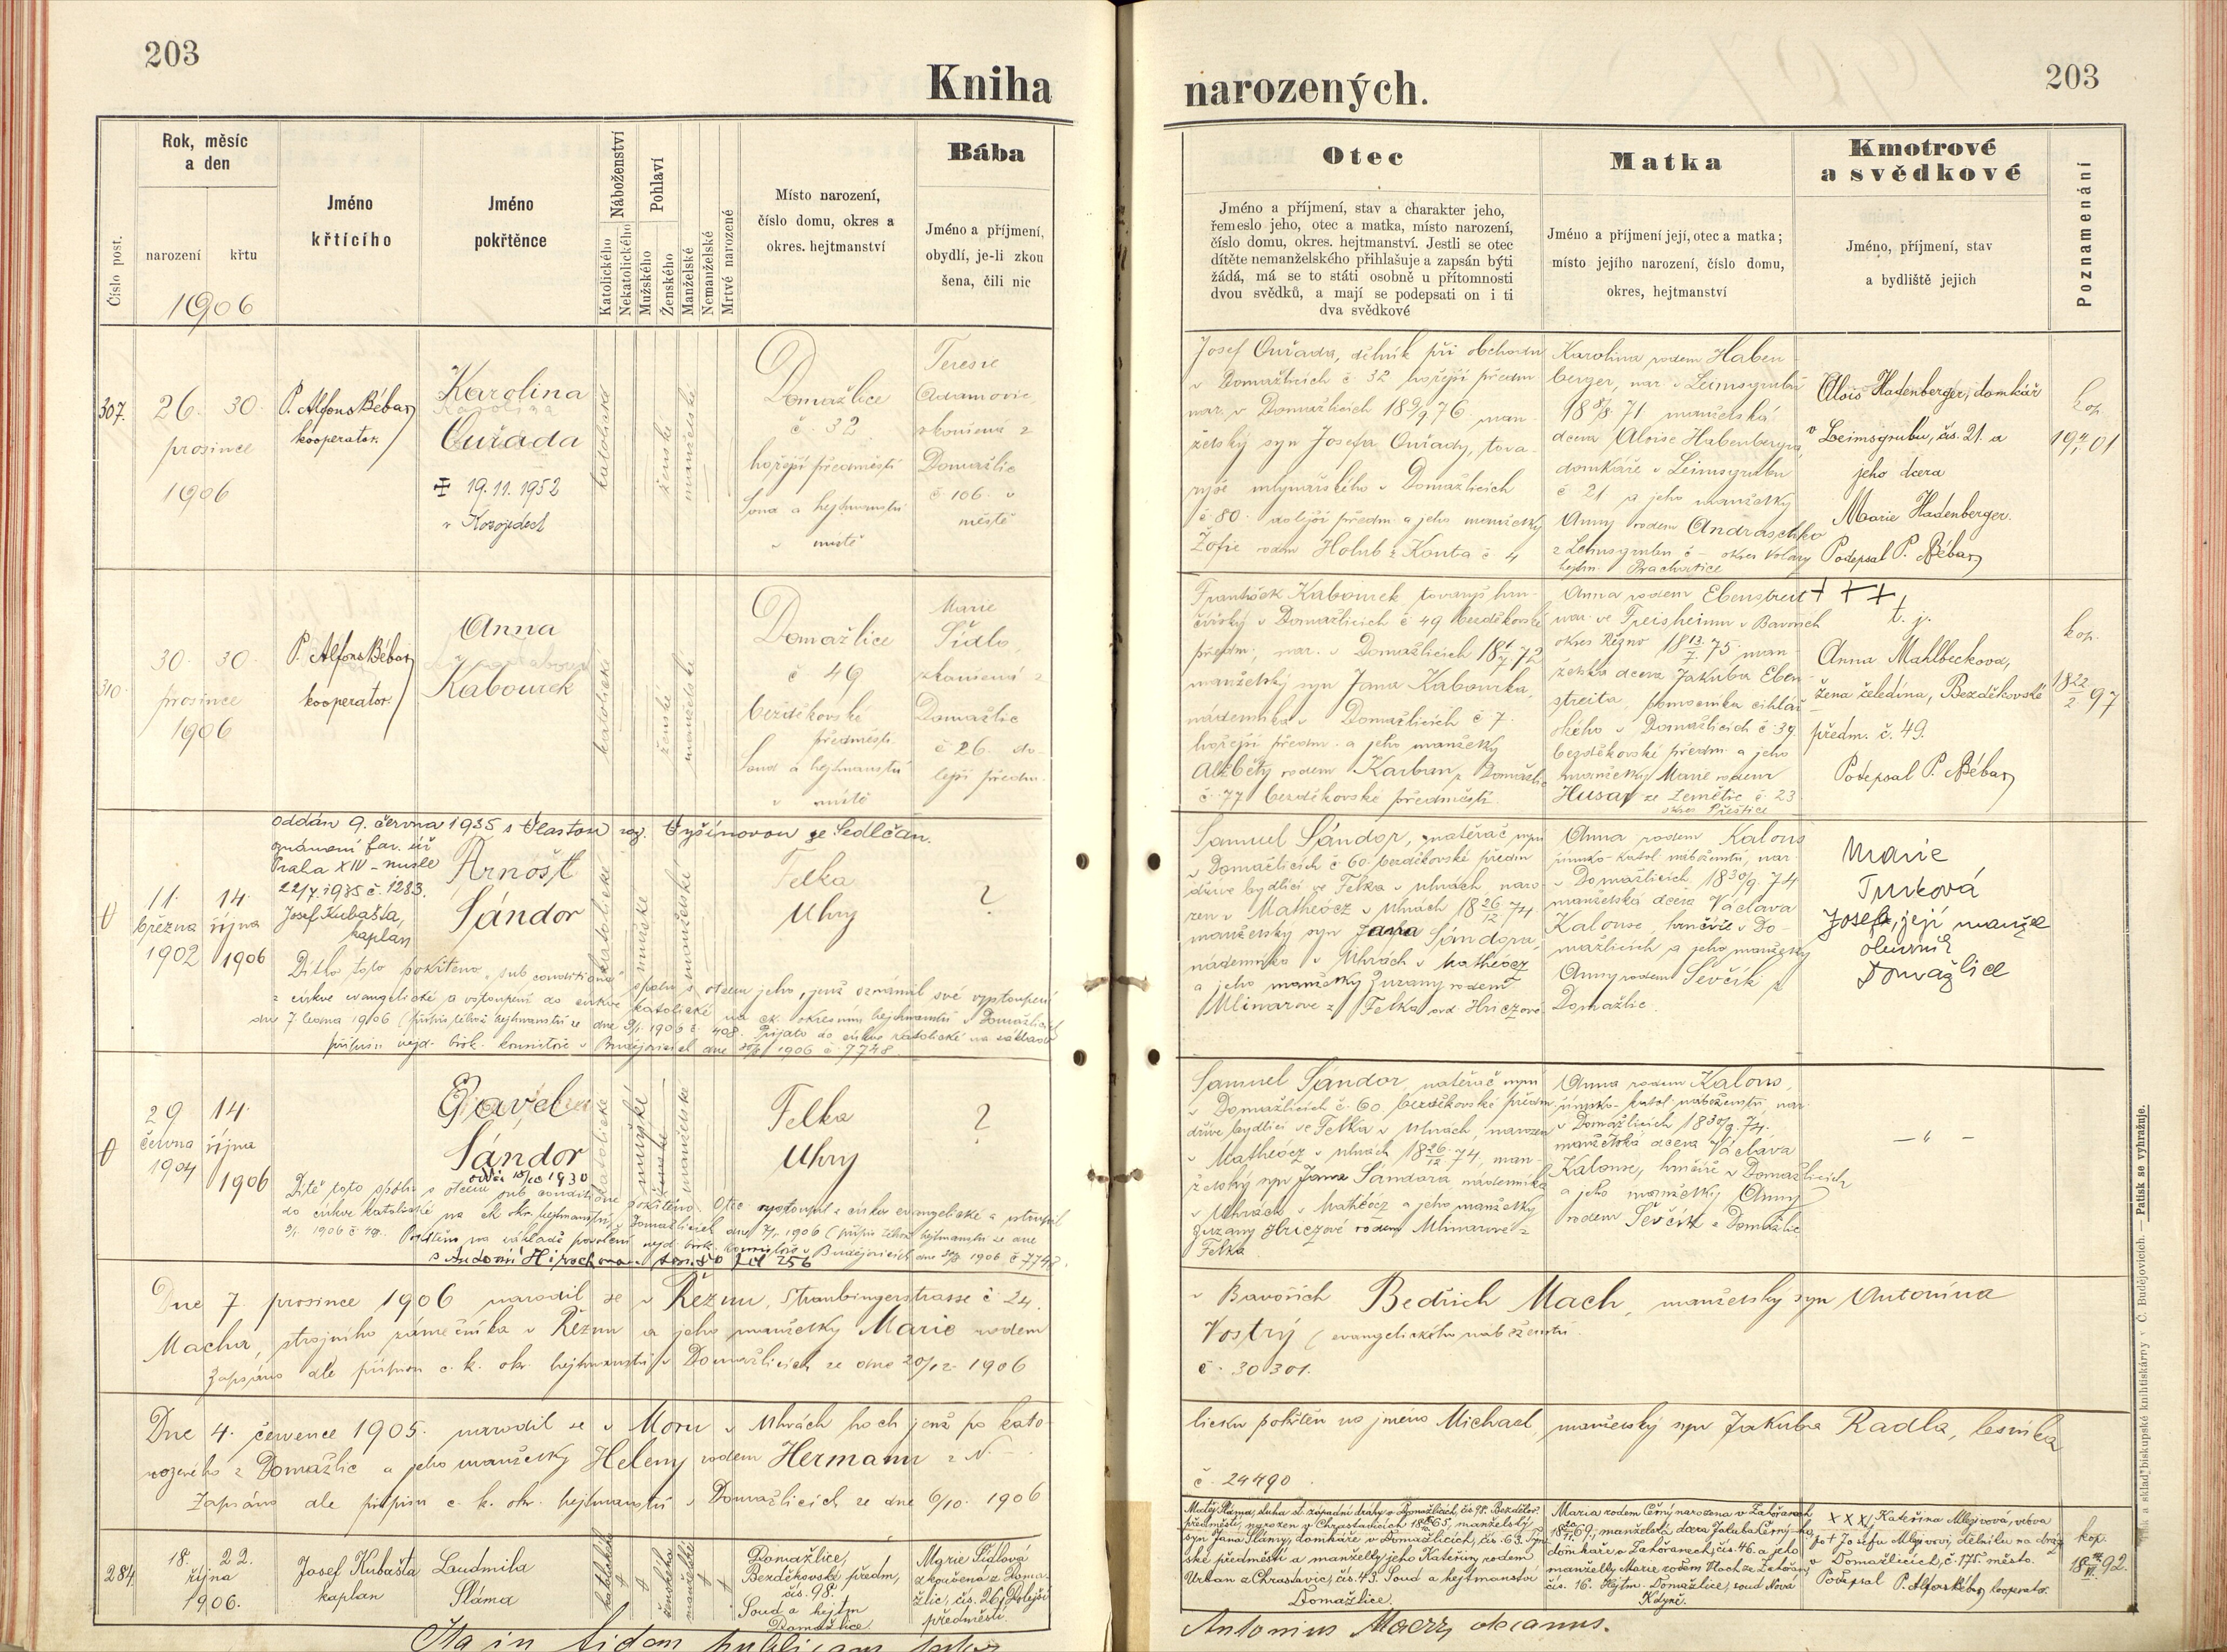 203
Kniha
narozených.
203
Číslo post.
Rok, měsíc
a den
narození
křtu
1906
Jméno
křtícího
Jméno
pokřtěnce
Náboženství
Katolického
Nekatolického
Pohlaví
Mužského
Ženského
Manželské
Nemanželské
Mrtvé narozené
Místo narození,
číslo domu, okres a
okres. hejtmanství
Bába
Jméno a příjmení,
obydlí, je-li zkou
šena, čili nic
Otec
Jméno a příjmení, stav a charakter jeho,
řemeslo jeho, otec a matka, místo narození,
číslo domu, okres. hejtmanství. Jestli se otec
dítěte nemanželského přihlašuje a zapsán býti
žádá, má se to státi osobně u přítomnosti
dvou svědků, a mají se podepsati on i ti
dva svědkové
Matka
Jméno a příjmení její, otec a matka;
místo jejího narození, číslo domu,
okres, hejtmanství
Kmotrové
a svědkové
Jméno, příjmení, stav
a bydliště jejich
Poznamenání
307.
26. 30.
prosince
1906
P. Alfons Bébar,
kooperator
Karolina
Ouřada
19. 11. 1952
v Kozojedech
katolické
ženské
manželské
Domažlice
č. 32
hořejší předměstí
Soud a hejtmanství
v místě
Terezie
Adamovic
zkoušená z
Domažlic
č 106 v
městě
Josef Ouřada, dělník při obchodu
v Domažlicích č 32 hořejší předm
nar. v Domažlicích 18 9/9 76. man-
želský syn Josefa Ouřady, tova-
ryše mlynářského v Domažlicích
č 80. dolejší předm. a jeho manželky
Žofie rodem Holub z Kouta č 4
Karolina rodem Haben-
berger, nar. v Leimsgrubu
18 8/8 71 manželská
dcera Aloise Habenbergra,
domkáře v Leimsgrubu
č 21 a jeho manželky
Anny rodem Andraschko
z Leimsgrubu č - okres Volary
hejtm. Prachatice
Alois Hadenberger, domkář
v Leimsgrubu, čís. 21. a
jeho dcera
Marie Hadenberger.
Podepsal P. Bébar,
kop.
310.
30. 30.
prosince
1906
P. Alfons Bébar,
kooperator.
Anna
Kabourek
katolické
ženské
manželské
Domažlice
č 49
bezděkovské
předměstí
Soud a hejtmanství
v místě
Marie
Šídlo,
zkoušená z
Domažlic
č 26. do-
lejší předm.
František Kabourek tovaryš hrn-
čířský v Domažlicích č 49 bezděkovské
předm., nar. v Domažlicích 18 1/7 72
manželský syn Jana Kabourka,
nádenníka v Domažlicích č 7.
hořejší předm. a jeho manželky
Alžběty rodem Karban z Domažlic
č. 77 bezděkovské předměstí.
Anna rodem Ebenstreit
nar. ve Freisheimu v Bavorích
okres Řezno 18 13/7 75 man-
želská dcera Jakuba Eben-
streita, pomocníka cihlář-
ského v Domažlicích č 39.
bezděkovské předm. a jeho
manželky Marie rodem
Husar ze Zemětic č 23
okres Přeštice
+ + +
t. j.
Anna Mahlbeckova,
žena čeledína, Bezděkovské
předm. č. 49.
Podepsal P. Bébar,
kop.
18 22/2 97
oddán 9. června 1935 s Vlastou roz. Vyšínovou ze Sedlčan.
oznámení far. úř
Praha XIV - Nusle
22/7. 1935 č. 1283.
11. 14.
března října
1902 1906
Josef Kubašta,
kaplan
Arnošt
Sándor
katolické
mužské
manželské
Felka
Uhry
?
Dítko toto pokřtěno „sub conditione" spolu s otcem jeho, jenž oznámil své vystoupení
z církve evangelické a vstoupení do církve katolické na ck. okresním hejtmanství v Domažlicích
dne 7 ledna 1906 (přípis téhož hejtmanství ze dne 9/1. 1906 č. 408. Přijato do církve katolické na základě
přípisu nejd. bisk. konsistoře v Budějovicích dne 1906 č. 7748.
Samuel Sándor, natěrač nyní
v Domažlicích č 60. bezděkovské předm
dříve bydlící ve Felka v Uhrách, naro-
zen v Matheócz v Uhrách 18 26/12 74
manželský syn Jana Sándora,
nádenníka v Uhrách v Matheócz
a jeho manželky Zuzany rodem
Mlinarove z Felka ovd. Hriczové
Anna rodem Kalous
římsko-katol. náboženství, nar.
v Domažlicích 18 30/9. 74
manželská dcera Václava
Kalouse, hrnčíře v Do-
mažlicích a jeho manželky
Anny rodem Ševčík z
Domažlic.
Marie
Turková
Josef, její manžel
Domažlice
29 14.
června října
1904 1906
Pavel
Sándor
katolické
mužské
manželské
Felka
Uhry
?
Dítě toto spolu s otcem sub conditione pokřtěno. Otec vystoupil z církve evangelické a vstoupil
do církve katolické na ck okr. hejtmanství v Domažlicích dne 7/1. 1906 (přípis téhož hejtmanství ze dne
9/1. 1906 č 408.
Samuel Sándor, natěrač nyní
v Domažlicích č. 60. bezděkovské předm
dříve bydlící ve Felka v Uhrách, narozen
v Matheócz v Uhrách 18 26/12 74, man-
želský syn Jana Sándora, nádenníka
v Uhrách v Matheócz a jeho manželky
Zuzany Hriczové rodem Mlinarové z
Felka
Anna rodem Kalous,
římsko-katol. náboženství, nar.
v Domažlicích 18 30/9. 74.
manželská dcera Václava
Kalouse, hrnčíře v Domažlicích
a jeho manželky Anny
rodem Ševčík z Domažlic
— „ —
Dne 7. prosince 1906 narodil se v Řeznu, Straubingerstrasse č 24. v Bavořích Bedřich Mach, manželský syn Antonína
Macha, strojního zámečníka v Řeznu a jeho manželky Marie rodem Vostrý (evangelického náboženství.
Zapsáno dle přípisu c. k. okr. hejtmanství v Domažlicích ze dne 20/12. 1906 č. 30301.
Dne 4. července 1905. narodil se v Moru v Uhrách hoch jenž po kato-
licku pokřtěn na jméno Michael, manželský syn Jakuba Radla, lesníka
rozeného z Domažlic a jeho manželky Heleny rodem Hermann z N -
Zapsáno dle přípisu c. k. okr. hejtmanství v Domažlicích ze dne 6/10. 1906
č. 24490.
284
18. 22.
října
1906.
Josef Kubašta
kaplan
Ludmila
Sláma
katolického
ženského
manželské
Domažlice,
Bezděkovské předm,
čís. 98.
Soud a hejtm
Domažlice.
Marie Šídlová
zkoušená z Doma-
žlic, čís. 26, Dolejší
předměstí.
Matěj Sláma, sluha st. západní dráhy v Domažlicích, čís. 98. Bezděkov.
předměstí, narozen v Chrastavicích 1865, manželský
syn Jana Slámy, domkáře v Domažlicích, čís. 63. Týn-
ské předměstí a manželky jeho Kateřiny rodem
Urban z Chrastavic, čís. 43. Soud a hejtmanství
Domažlice.
Maria rodem Černý narozena v Zahořanech
manželská dcera Jakuba Černý-ho,
domkáře v Zahořanech, čís. 46. a jeho
manželky Marie rodem Mach ze Zahořan
čís. 16. Hejtm. Domažlice, soud Nová
Kdyně.
XXX, Kateřina Mlejnová, vdova
po + Josefu Mlejnovi, dělníku na dráze
v Domažlicích, č. 175. město.
Podepsal P. Alfons Bébar, kooperator.
kop.
Ita in fidem publicam testor
Antonius Maerz, decanus.
a sklad biskupské knihtiskárny v Č. Budějovicích. — Patisk se vyhražuje.